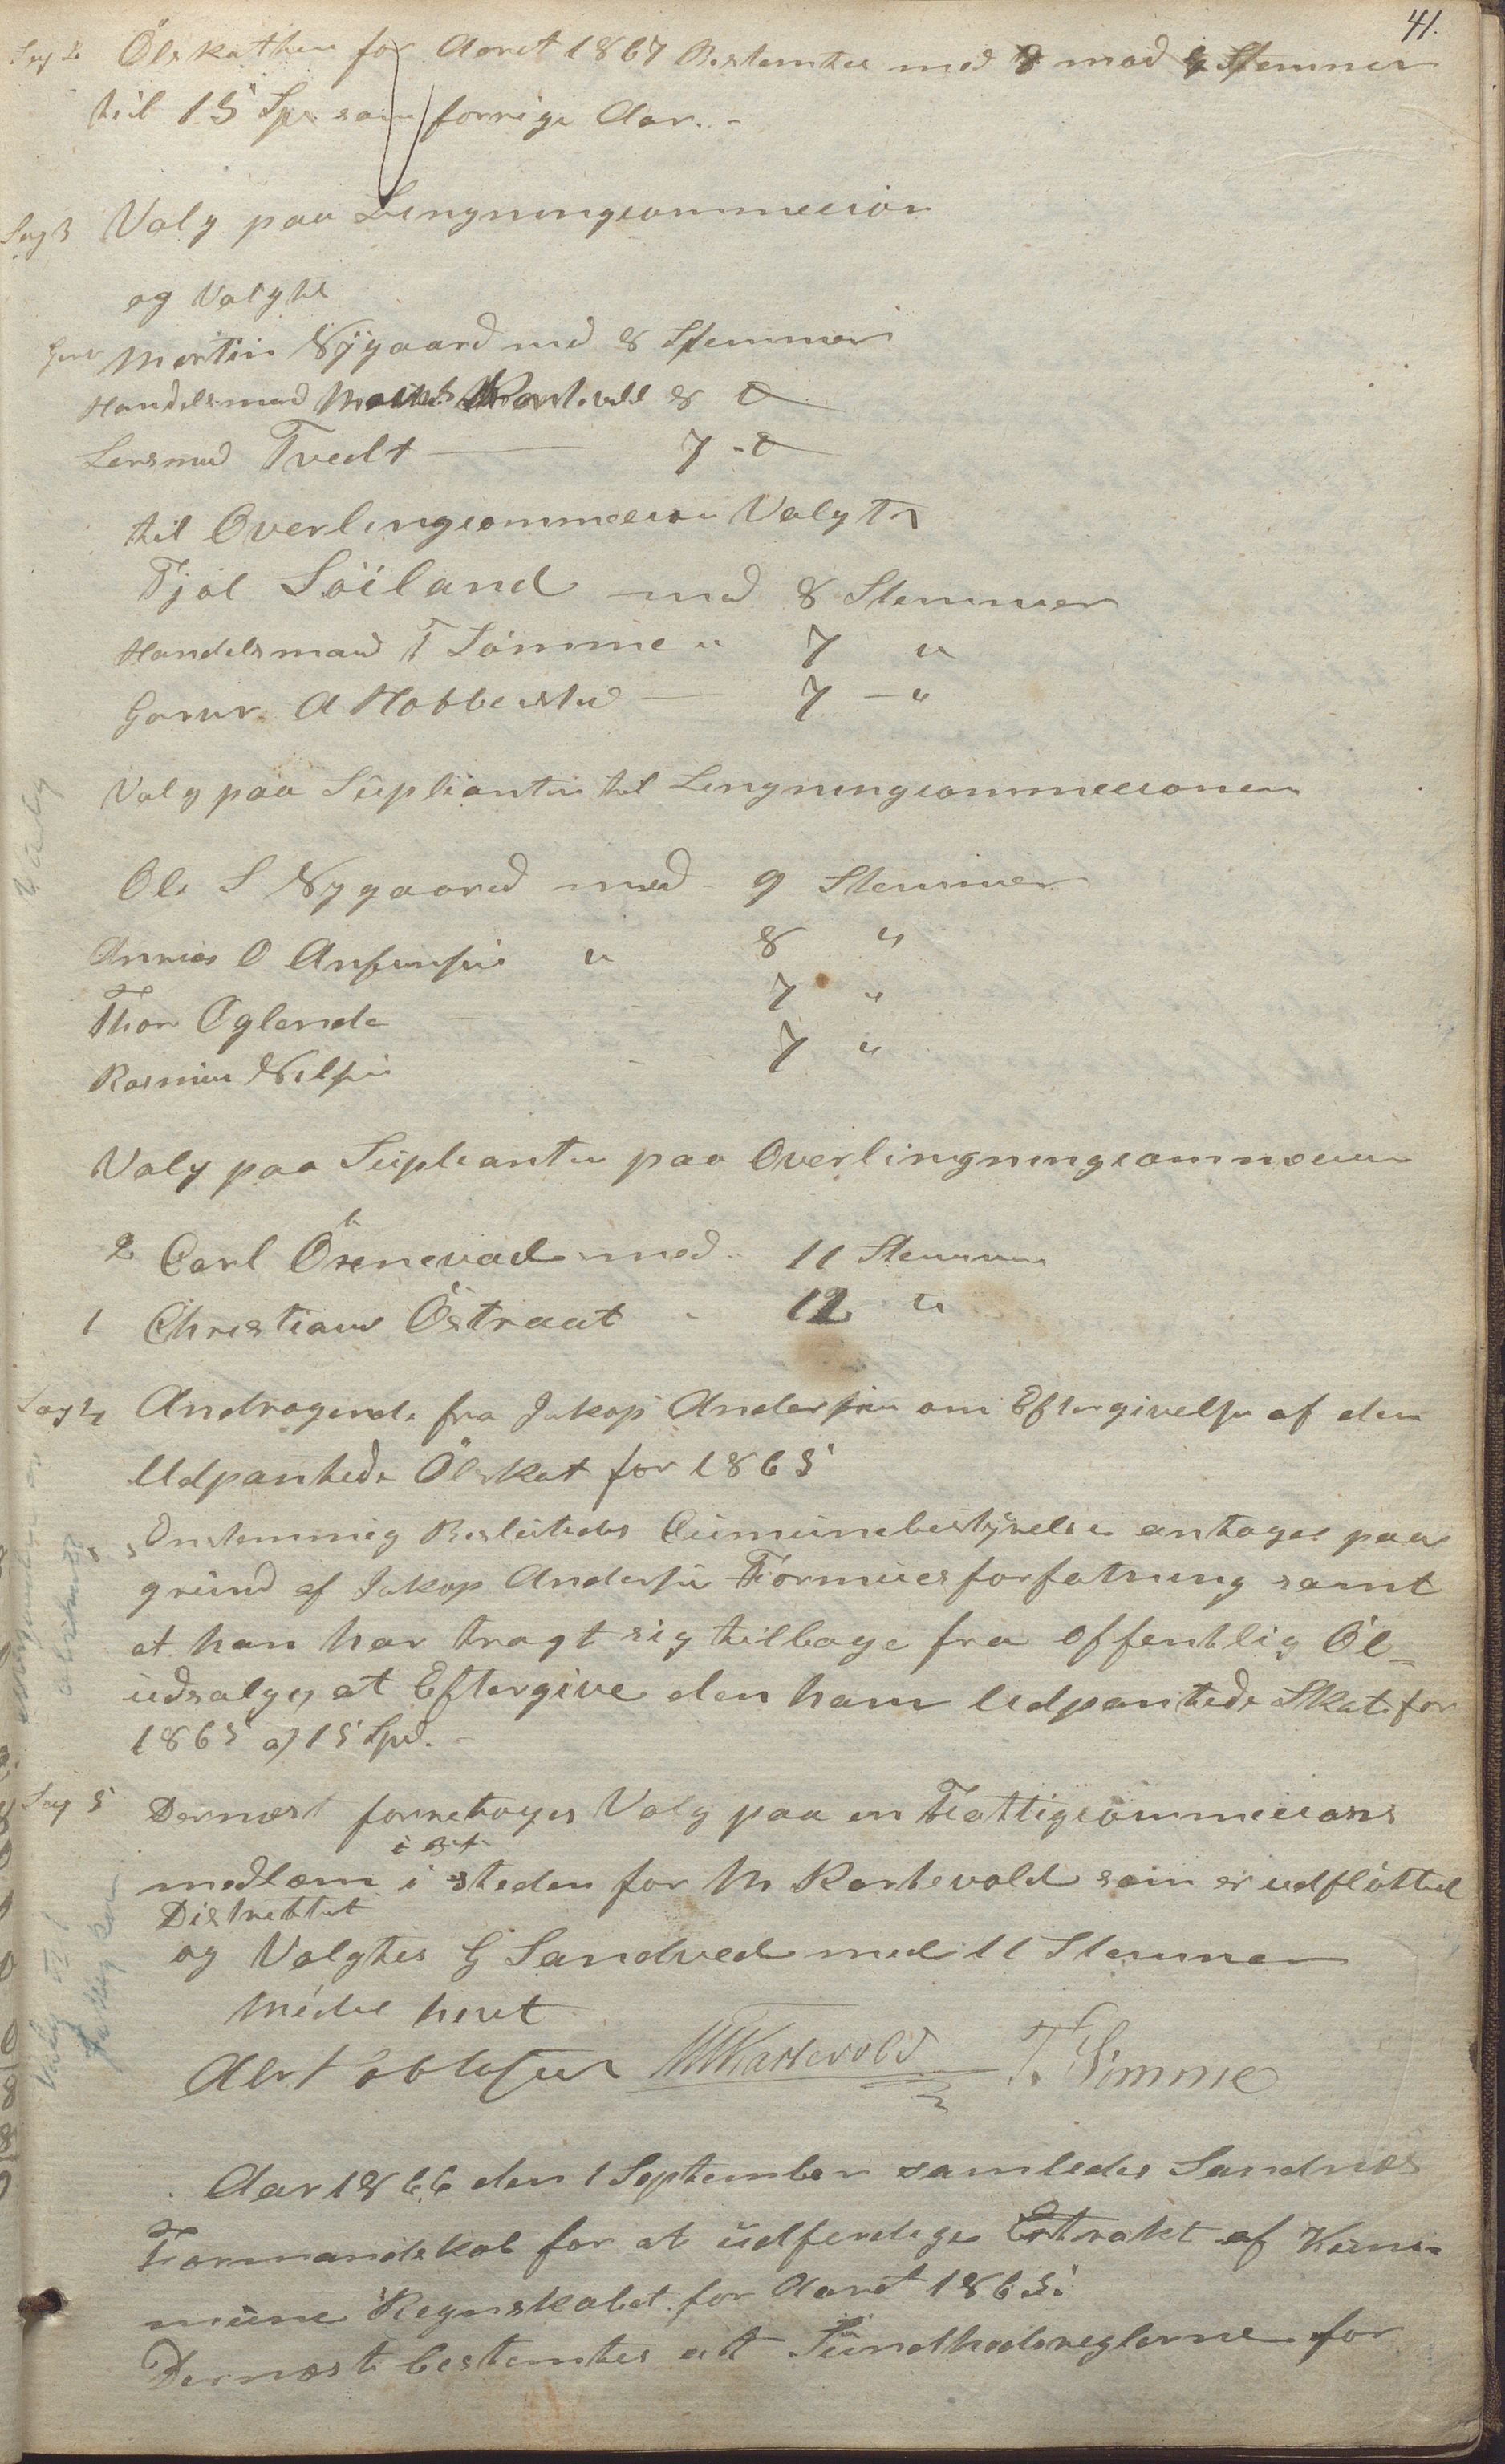 41.
Sag 2 Ölskatten for Aaret 1867 Bestemtes med 8 mod 4 Stemmer
til 15 Spd som forrige Aar.-
Sag 3 Valg paa Lingningcommecion
og Valgtes
Garver Martin Nÿgaard med 8 Stemmer
Handelsmand Kartevold 8 "
Lensmd Tvedt — 7 - "
til Overlingcommecion Valgtes
Tjøl Söiland med 8 Stemmer
Handelsmand T Sömme " 7 "
Garver A Hobbestad — 7 — "
Valg paa Süplianter til Lengningcommecionen
Ole S Nygaard med 9 Stemmer
Annias O Anfinsen " 8 "
Thor Öglende 7 "
Rasmus Nilsen 7 "
Valg paa Süplianter paa Overlingningcommecion
2 Carl Öxnevad med 11 Stemmer
1 Christian Östraat - 12 "
Sag 4 Andragende fra Jakop Andersen om Eftergivelse af den
Udpantede Ölskat for 1865
Enstemmig Beslutedes Cümünebestÿrelse antages paa
gründ af Jakop Andersen Formuesforfatning samt
at han har tragt sig tilbage fra offentlig Öl-
üdsalg, at Eftergive den ham Udpantede Skat for
1865 af 15 Spd. -
Sag 5 Dernæst forretoges Valg paa en Fattigcommecions
medlem i steden for M Kartevold som er udflöttet
Distrektet
og Valgtes G Sandved med 11 Stemmer
Mödet hevet
MKartevold T. Sömme
Aar 1866 den 1 September samledes Sandnæs
Formandskab for at üdferdige Extrakt af Kum-
müne Regnskabet for Aaret 1865.
Dernæst bestemtes at Sündhedsreglerne for
Valg
Valg af 1
Fattigkom